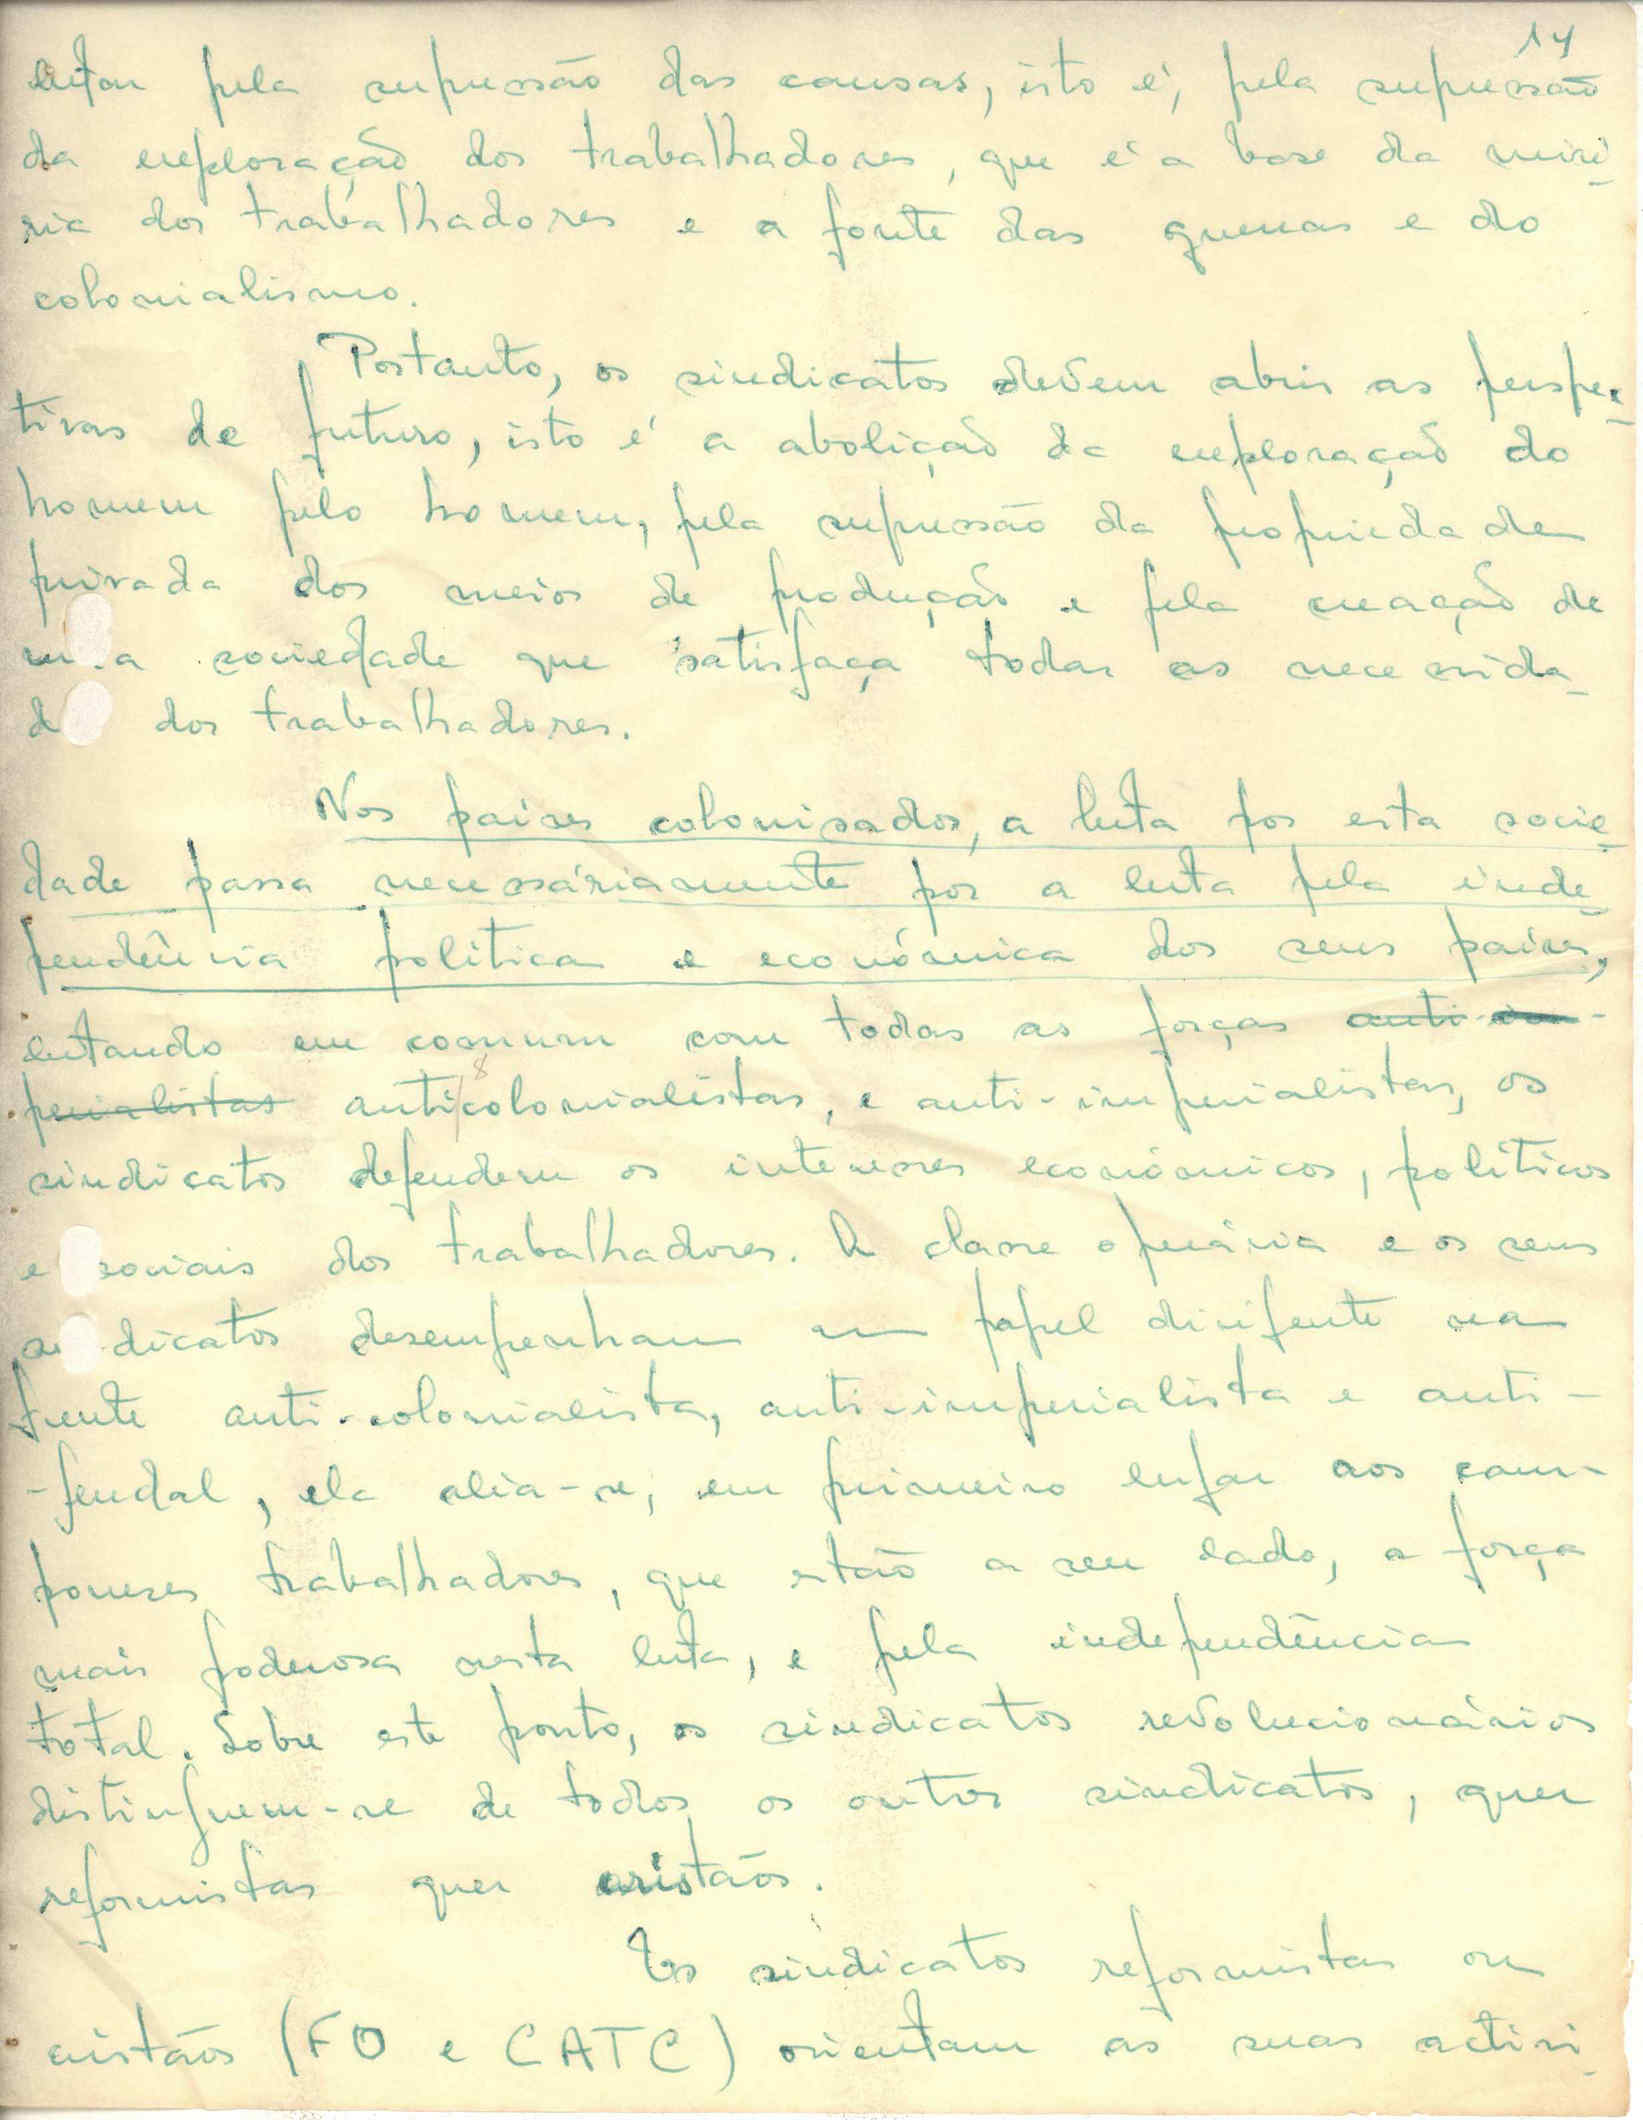 14
lutar pela supressão das causas, isto é, pela supressão
da exploração dos trabalhadores, que é a base da misé-
ria dos trabalhadores e a fonte das guerras e do
colonialismo.
Portanto, os sindicatos devem abrir as perspec-
tivas de futuro, isto é a abolição da exploração do
homem pelo homem, pela supressão da propriedade
privada dos meios de produção e pela creação de
a sociedade que satisfaça todas as necessida-
d dos trabalhadores.
Nos países colonisados, a luta por esta socie-
dade passa necessáriamente por a luta pela inde-
pendência política e económica dos seus países,
lutando em comum com todas as forças anti-im-
perialistas anticolonialistas, e anti-imperialistas, os
sindicatos defendem os interesses económicos, políticos
e sociais dos trabalhadores. A classe operária e os seus
dicatos desempenham um papel dirigente na
frente anti-colonialista, anti-imperialista e anti-
-feudal, ela alia-se, em primeiro lugar aos cam-
poneses trabalhadores, que estão a seu lado, a força
mais poderosa nesta luta, e pela independência
total. Sobre este ponto, os sindicatos revolucionários
distinguem-se de todos os outros sindicatos, quer
reformistas quer cristãos.
Os sindicatos reformistas ou
cristãos (FO e CATC) orientam as suas activi-